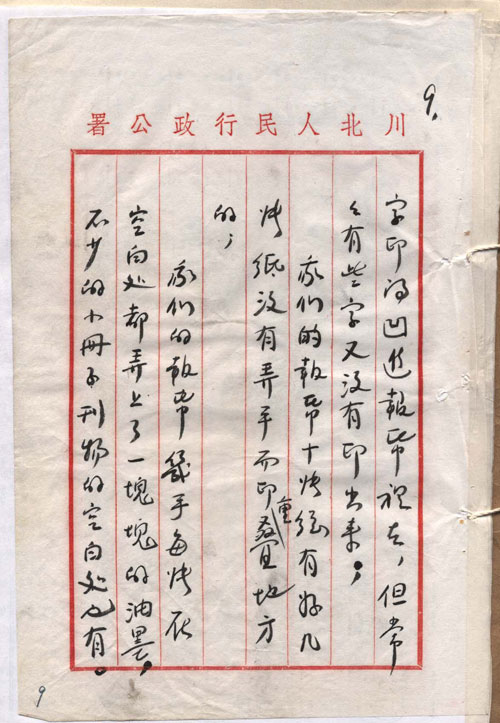 9.
川北人民行政公署
字印得凹进報帋裡去，但常
々有些字又没有印出来；
我们的報帋十张總有好几
张纸没有弄平而印重叠地方
的；
我们的報帋幾乎每张在
空白处都弄上了一塊塊的油墨，
不少的小冊子刊物的空白处也有。
9